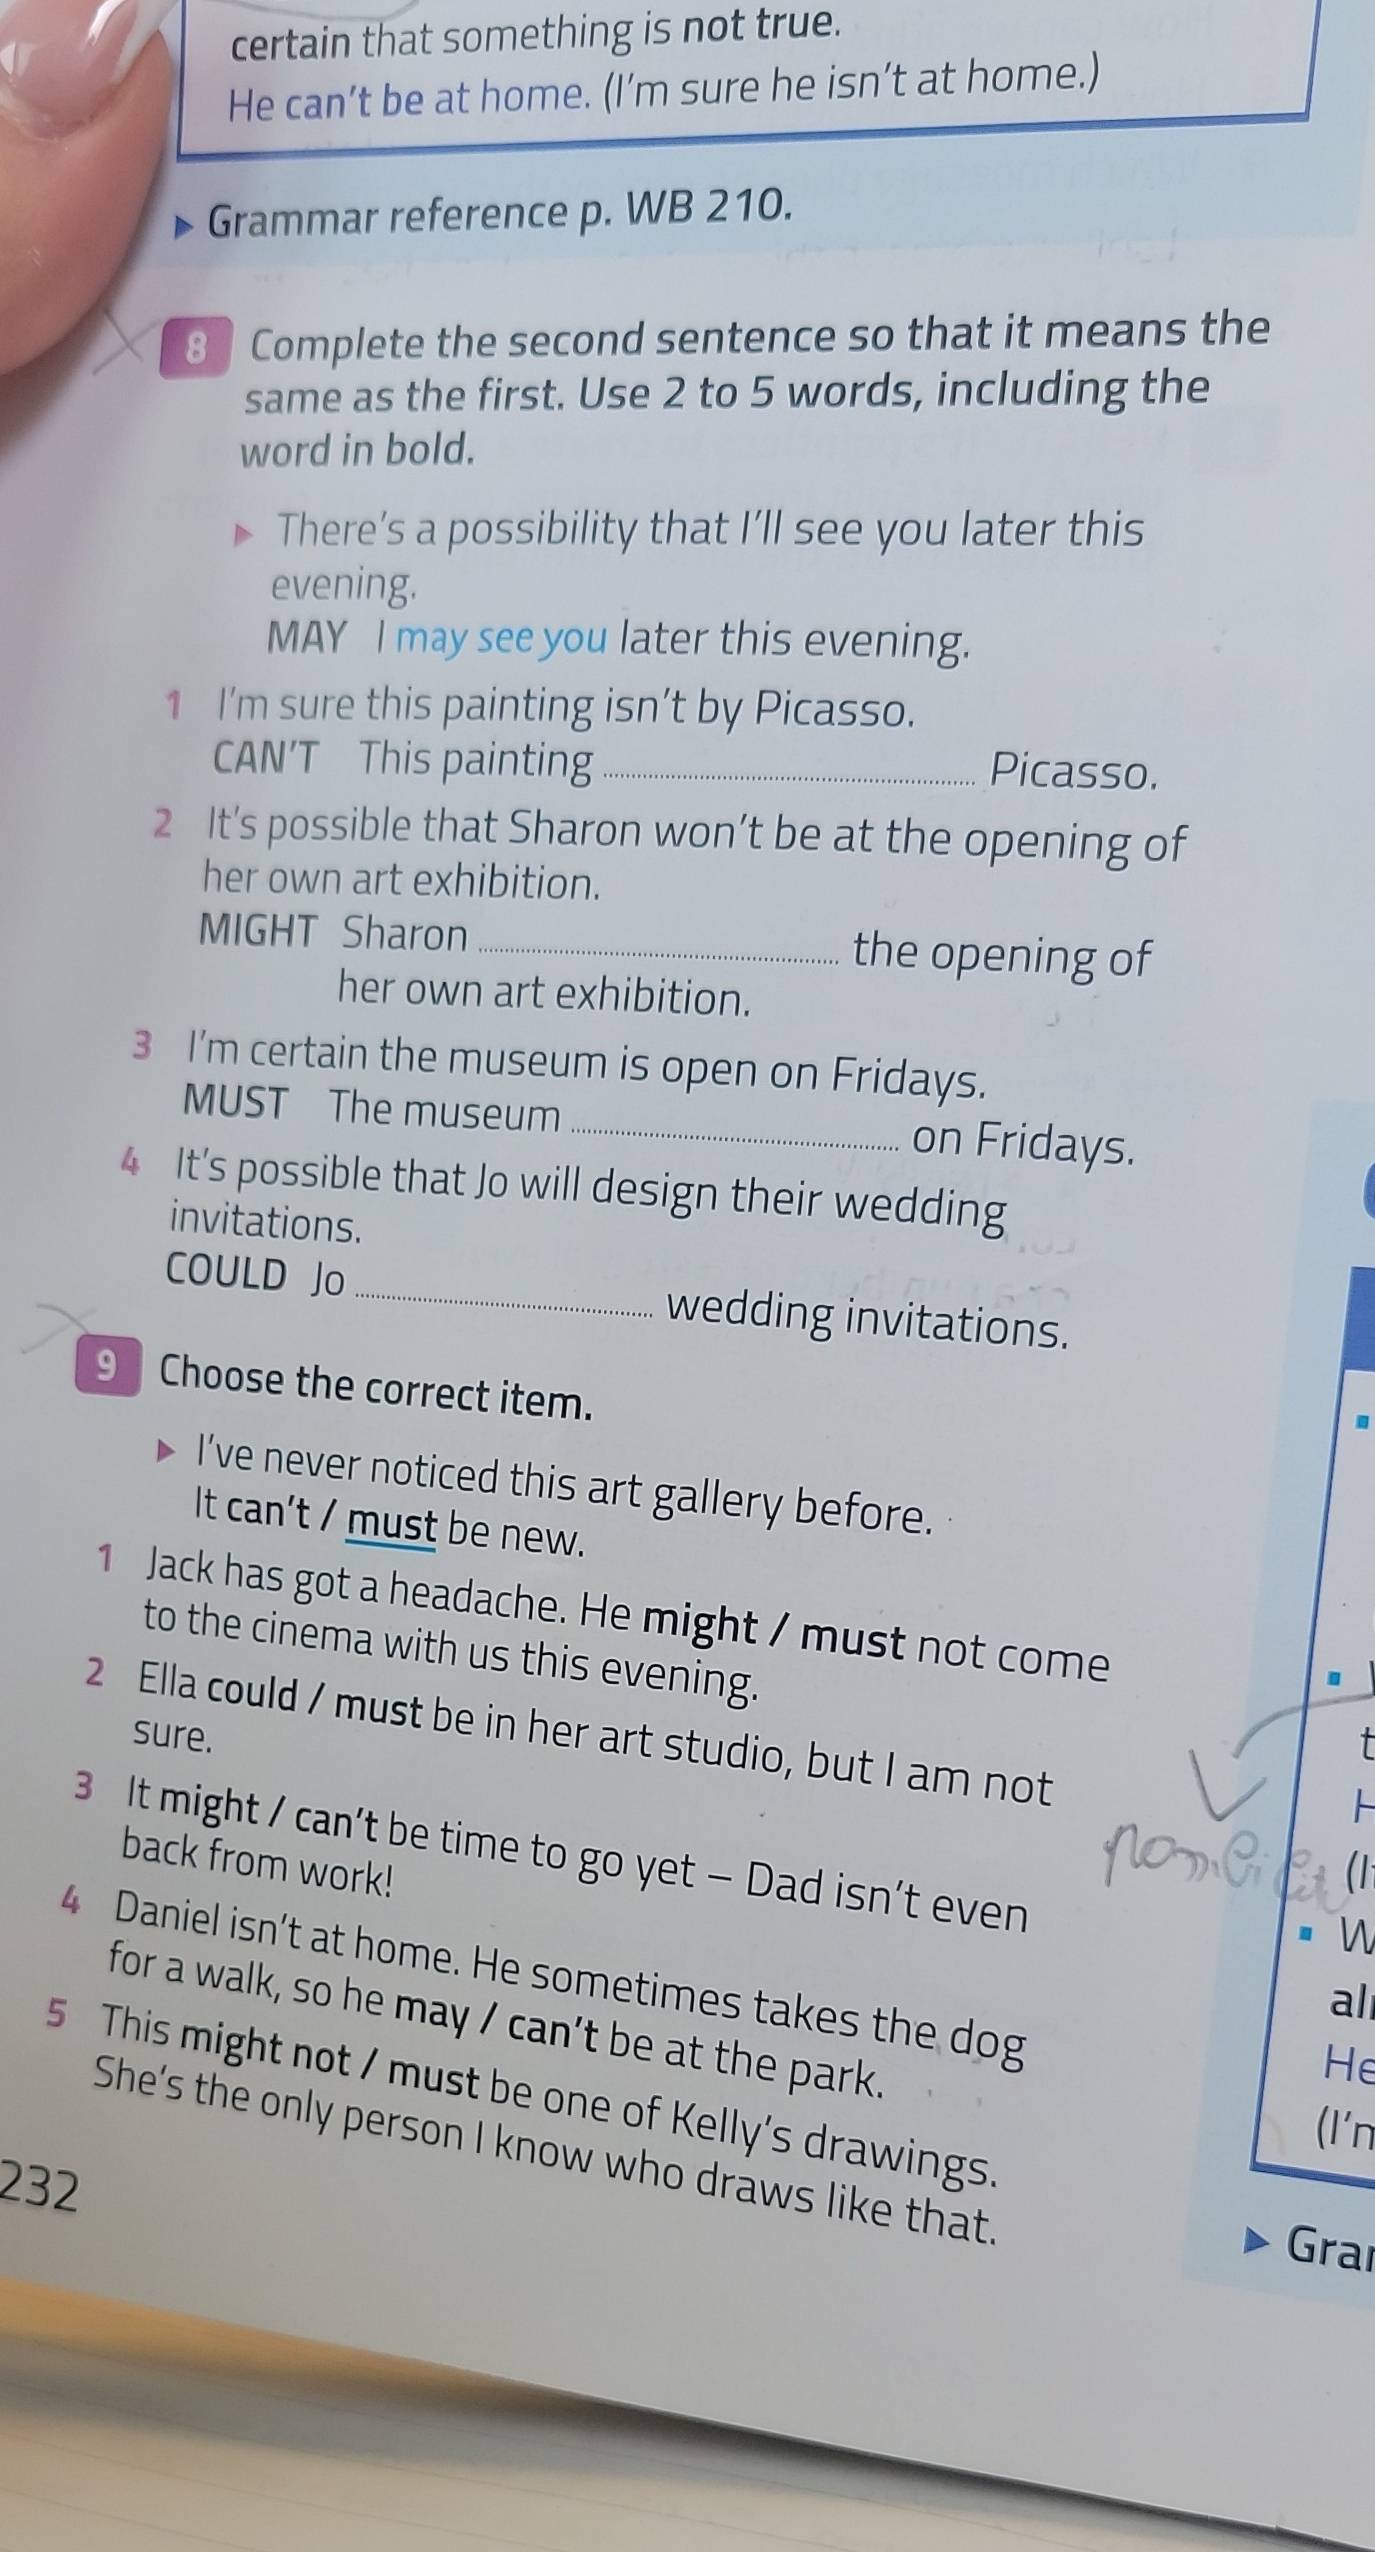 certain that something is not true.
He can't be at home. (I'm sure he isn't at home.)
▸ Grammar reference p. WB 210.
8 Complete the second sentence so that it means the
same as the first. Use 2 to 5 words, including the
word in bold.
▸ There's a possibility that I'll see you later this
evening.
MAY I may see you later this evening.
1 I'm sure this painting isn't by Picasso.
CAN'T This painting ........ Picasso.
2 It's possible that Sharon won't be at the opening of
her own art exhibition.
MIGHT Sharon ........ the opening of
her own art exhibition.
3 I'm certain the museum is open on Fridays.
MUST The museum ........ on Fridays.
4 It's possible that Jo will design their wedding
invitations.
COULD Jo ........ wedding invitations.
9 Choose the correct item.
▸ I've never noticed this art gallery before.
It can't / must be new.
1 Jack has got a headache. He might / must not come
to the cinema with us this evening.
2 Ella could / must be in her art studio, but I am not
sure.
3 It might / can't be time to go yet – Dad isn't even
back from work!
4 Daniel isn't at home. He sometimes takes the dog
for a walk, so he may / can't be at the park.
5 This might not / must be one of Kelly's drawings.
She's the only person I know who draws like that.
232
He
(I'm
▸ Gra